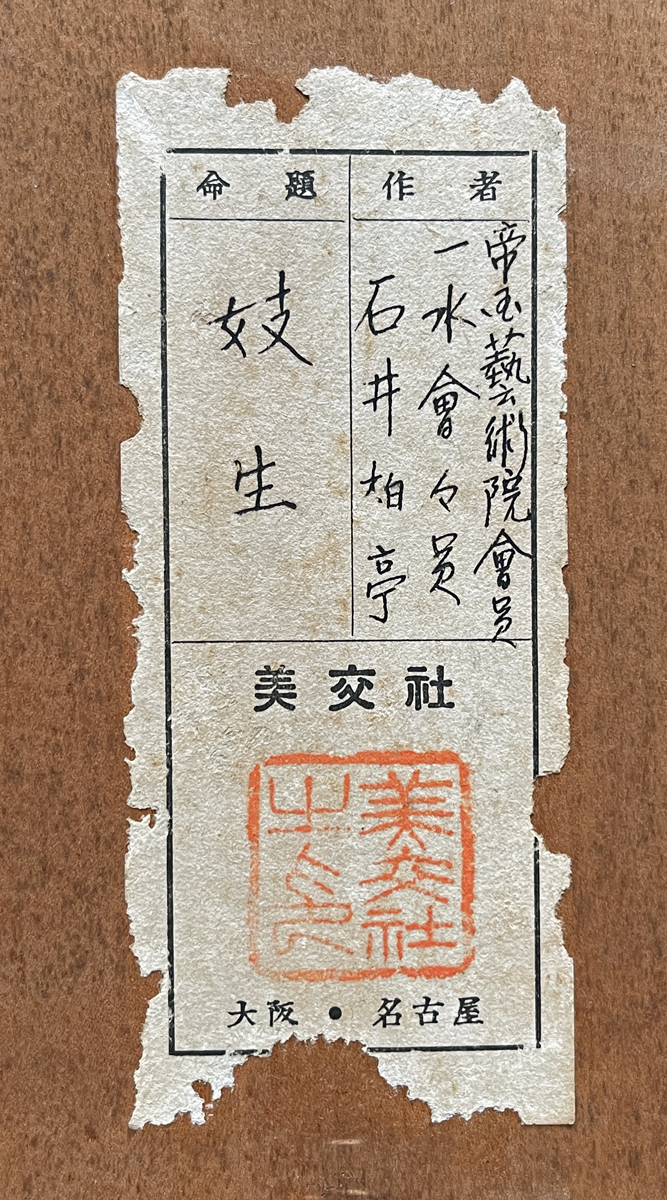 作者
帝国藝術院會員
一水會々員
石井柏亭
命題
妓生
美交社
美交社
之印
大阪・名古屋